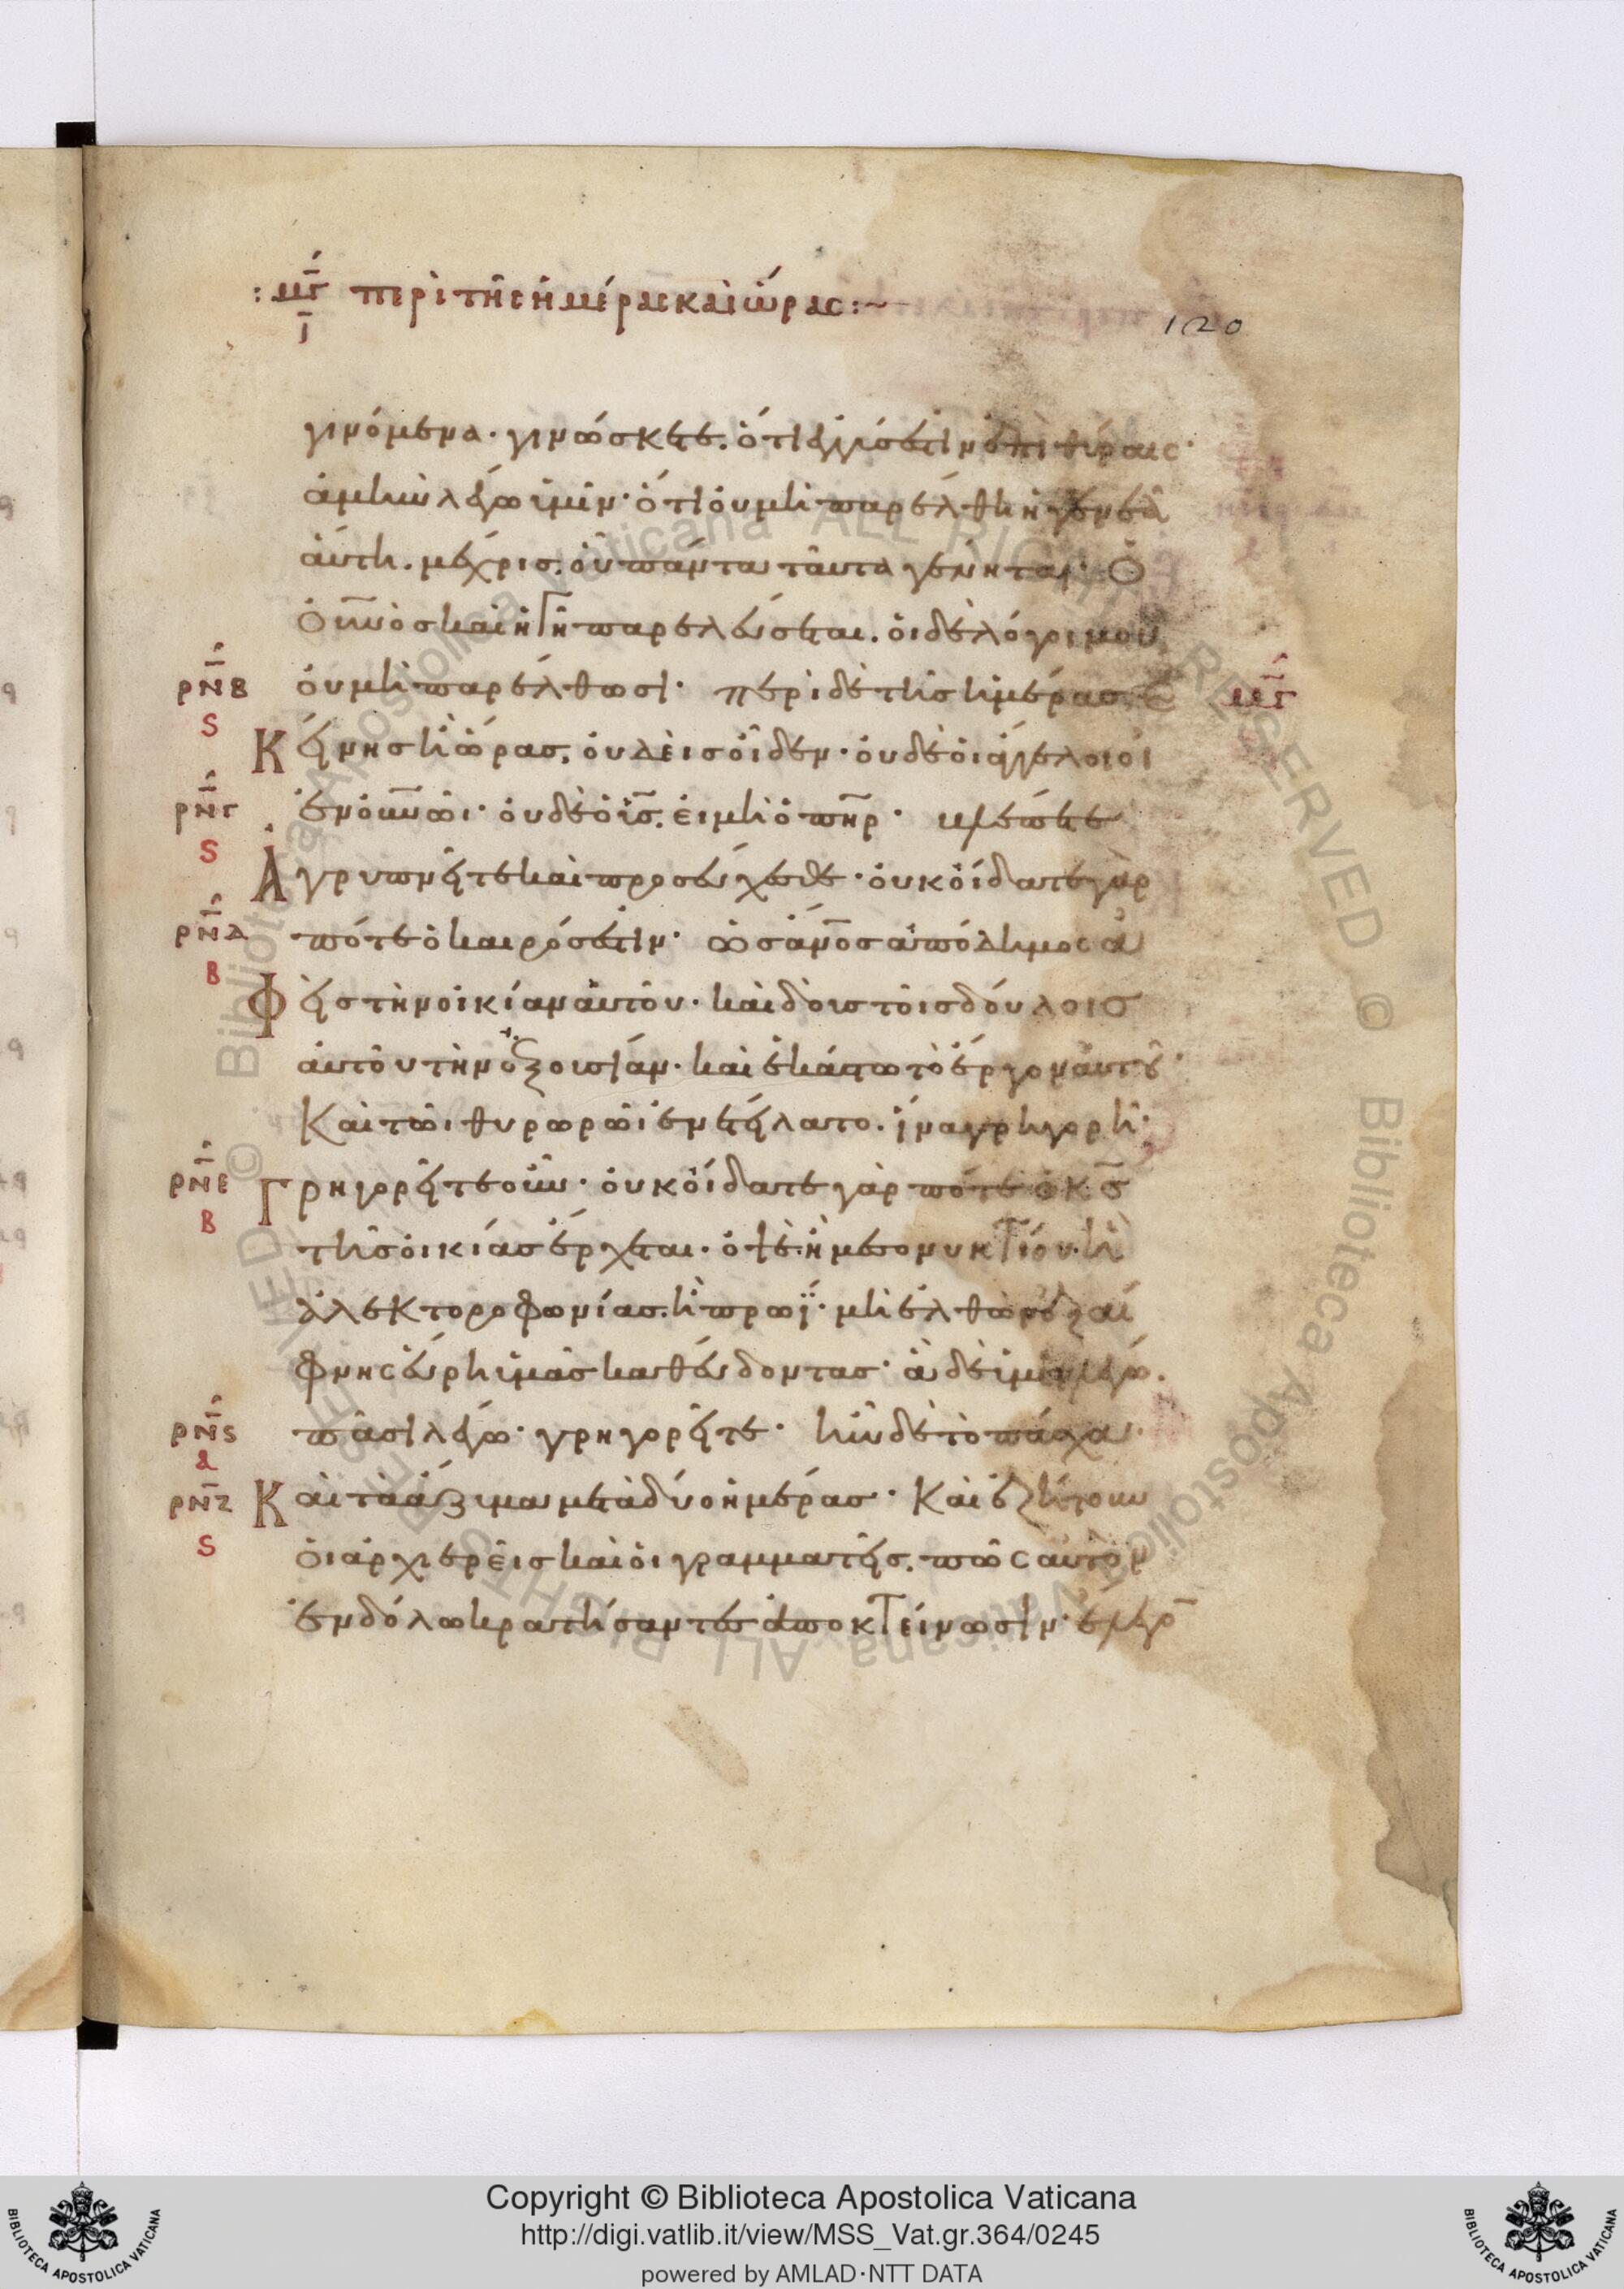 : μγ̅ περὶ τῆς ἡμέρας καὶ ὥρας :~
ι̅
120
γινόμενα· γινώσκετε. ὅτι ἐγγύς ἐστιν ἐπὶ θύραις·
ἀμὴν λέγω ὑμῖν· ὅτι οὐ μὴ παρέλθη ἡ γενεὰ
αὕτη. μέχρις. οὗ πάντα ταῦτα γένηται· Ὁ
ὀυν̅ὸς καὶ ἡ γῆ παρελεύσεται. οἱ δὲ λόγοι μου
ρν̅β οὐ μὴ παρέλθωσι· περὶ δὲ τῆς ἡμέρας ἐ μγ̅
ς
Κείνης ἢ ὥρας. οὐδεὶς οἶδεν· οὐδὲ οἱ ἄγγελοι οἱ
ρν̅γ ἐν ὀυν̅ῶι· οὐδὲ ὁ υἱ̅ς. εἰ μὴ ὁ πη̅ρ· βλέπετε
ς
Ἀγρυπνεῖτε καὶ προσεύχεσθε· οὐκ οἴδατε γὰρ
ρν̅δ πότε ὁ καιρός ἐστιν· ὡς ἄν̅ος ἀπόδημος ἀ
β
Φεὶς τὴν οἰκίαν αὐτοῦ· καὶ δοὺς τοῖς δούλοις
αὐτοῦ τὴν ἐξουσίαν· καὶ ἑκάστω τὸ ἔργον αὐτοῦ·
Καὶ τῶι θυρωρῶι ἐνετείλατο. ἵνα γρηγορῆ·
ρν̅ε Γρηγορεῖτε οὖν· οὐκ οἴδατε γὰρ πότε ὁ κ̅ς
β
τῆς οἰκίας ἔρχεται. ὀψὲ. ἢ μεσονυκτίου. ἢ
ἀλεκτοροφωνίας. ἢ πρωΐ· μὴ ἐλθὼν ἐξαί
φνης εὕρη ὑμᾶς καθεύδοντας· ἃ δὲ ὑμῖν λέγω.
ρν̅ς πᾶσι λέγω· γρηγορεῖτε· ἦν δὲ τὸ πάσχα·
α
ρν̅ζ Καὶ τὰ ἄζυμα μετὰ δύο ἡμέρας· Καὶ ἐζήτουν
ς
οἱ ἀρχιερεῖς καὶ οἱ γραμματεῖς. πῶς αὐτὸν
ἐν δόλω κρατήσαντες ἀποκτείνωσιν· ἔλεγο̅
Copyright © Biblioteca Apostolica Vaticana
http://digi.vatlib.it/view/MSS_Vat.gr.364/0245
powered by AMLAD·NTT DATA
BIBLIOTECA APOSTOLICA VATICANA
BIBLIOTECA APOSTOLICA VATICANA
© Biblioteca Apostolica Vaticana ALL RIGHTS RESERVED © Biblioteca Apostolica Vaticana ALL RIGHTS RESERVED